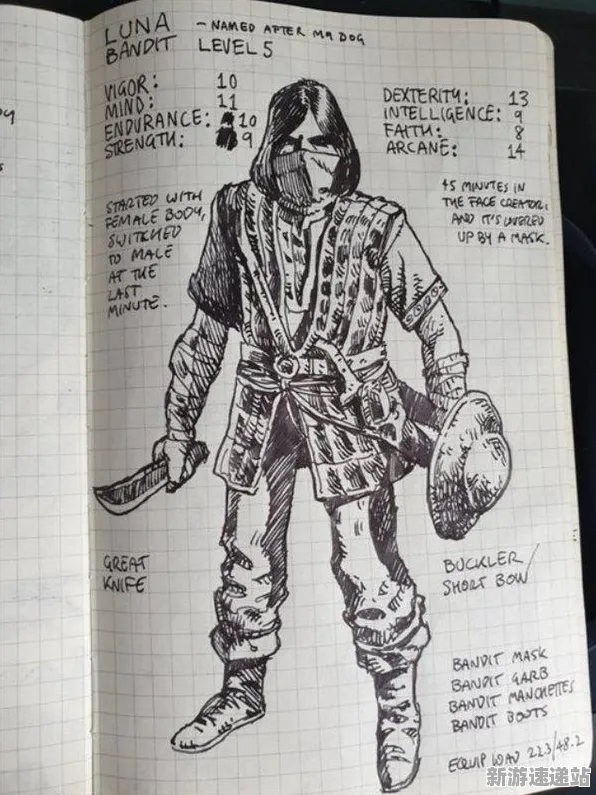 LUNA - NAMED AFTER MY DOG
BANDIT LEVEL 5
VIGOR: 10
MIND: 11
ENDURANCE: 10
STRENGTH: 9
DEXTERITY: 13
INTELLIGENCE: 9
FAITH: 8
ARCANE: 14
STARTED WITH
FEMALE BODY,
SWITCHED
TO MALE
AT THE
LAST
MINUTE.
45 MINUTES IN
THE FACE CREATOR,
AND IT'S COVERED
UP BY A MASK.
GREAT
KNIFE
BUCKLER/
SHORT BOW
BANDIT MASK
BANDIT GARB
BANDIT MANCHETTES
BANDIT BOOTS
EQUIP LOAD 22.3/48.2
新游速递站